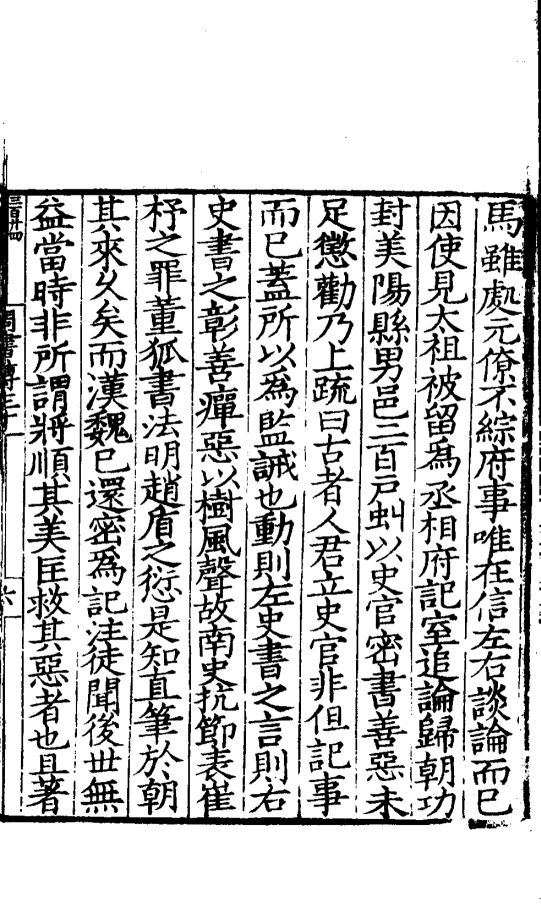 馬雖處元僚不綜府事唯在信左右談論而已
因使見太祖被留爲丞相府記室追論歸朝功
封美陽縣男邑二百戸虯以史官密書善惡未
足懲勸乃上疏曰古者人君立史官非但記事
而已蓋所以爲監誡也動則左史書之言則右
史書之彰善癉惡以樹風聲故南史抗節表崔
杼之罪董狐書法明趙盾之愆是知直筆於朝
其來久矣而漢魏已還密爲記注徒聞後世無
益當時非所謂將順其美匡救其惡者也且著
三百廾四
周書傳三十
六